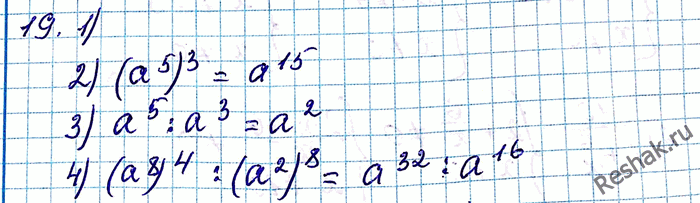 19. 1)
2) (a⁵)³ = a¹⁵
3) a⁵ : a³ = a²
4) (a⁸)⁴ : (a²)⁸ = a³² : a¹⁶
Reshak.ru